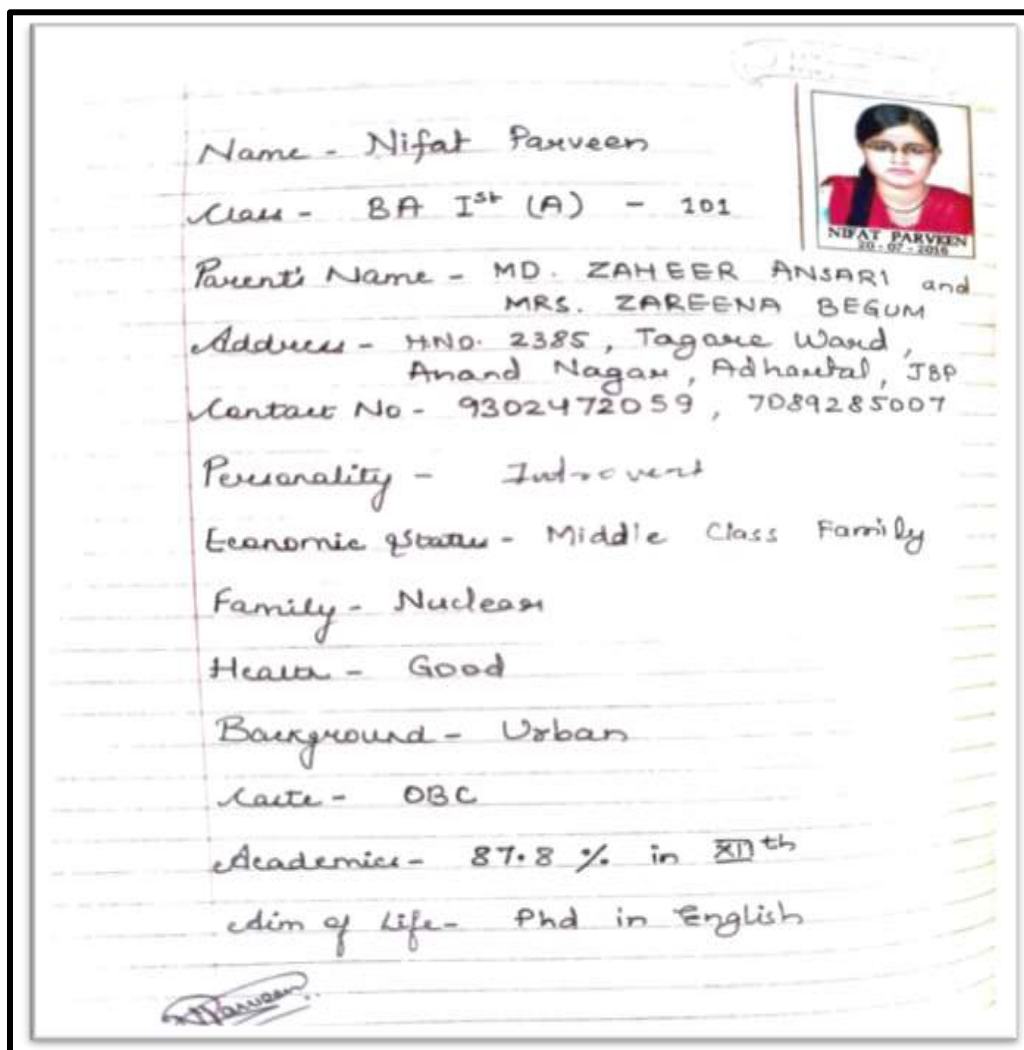 Name - Nifat Parveen
Class - BA Ist (A) - 101
NIFAT PARVEEN
20-07-2016
Parent's Name - MD. ZAHEER ANSARI and
MRS. ZAREENA BEGUM
Address - H.NO. 2385, Tagore Ward,
Anand Nagar, Adhartal, JBP
Contact No - 9302472059, 7089285007
Personality - Introvert
Economic Status - Middle Class Family
Family - Nuclear
Health - Good
Background - Urban
Caste - OBC
Academics - 87.8 % in XIIth
Aim of Life - Phd in English
Parveen